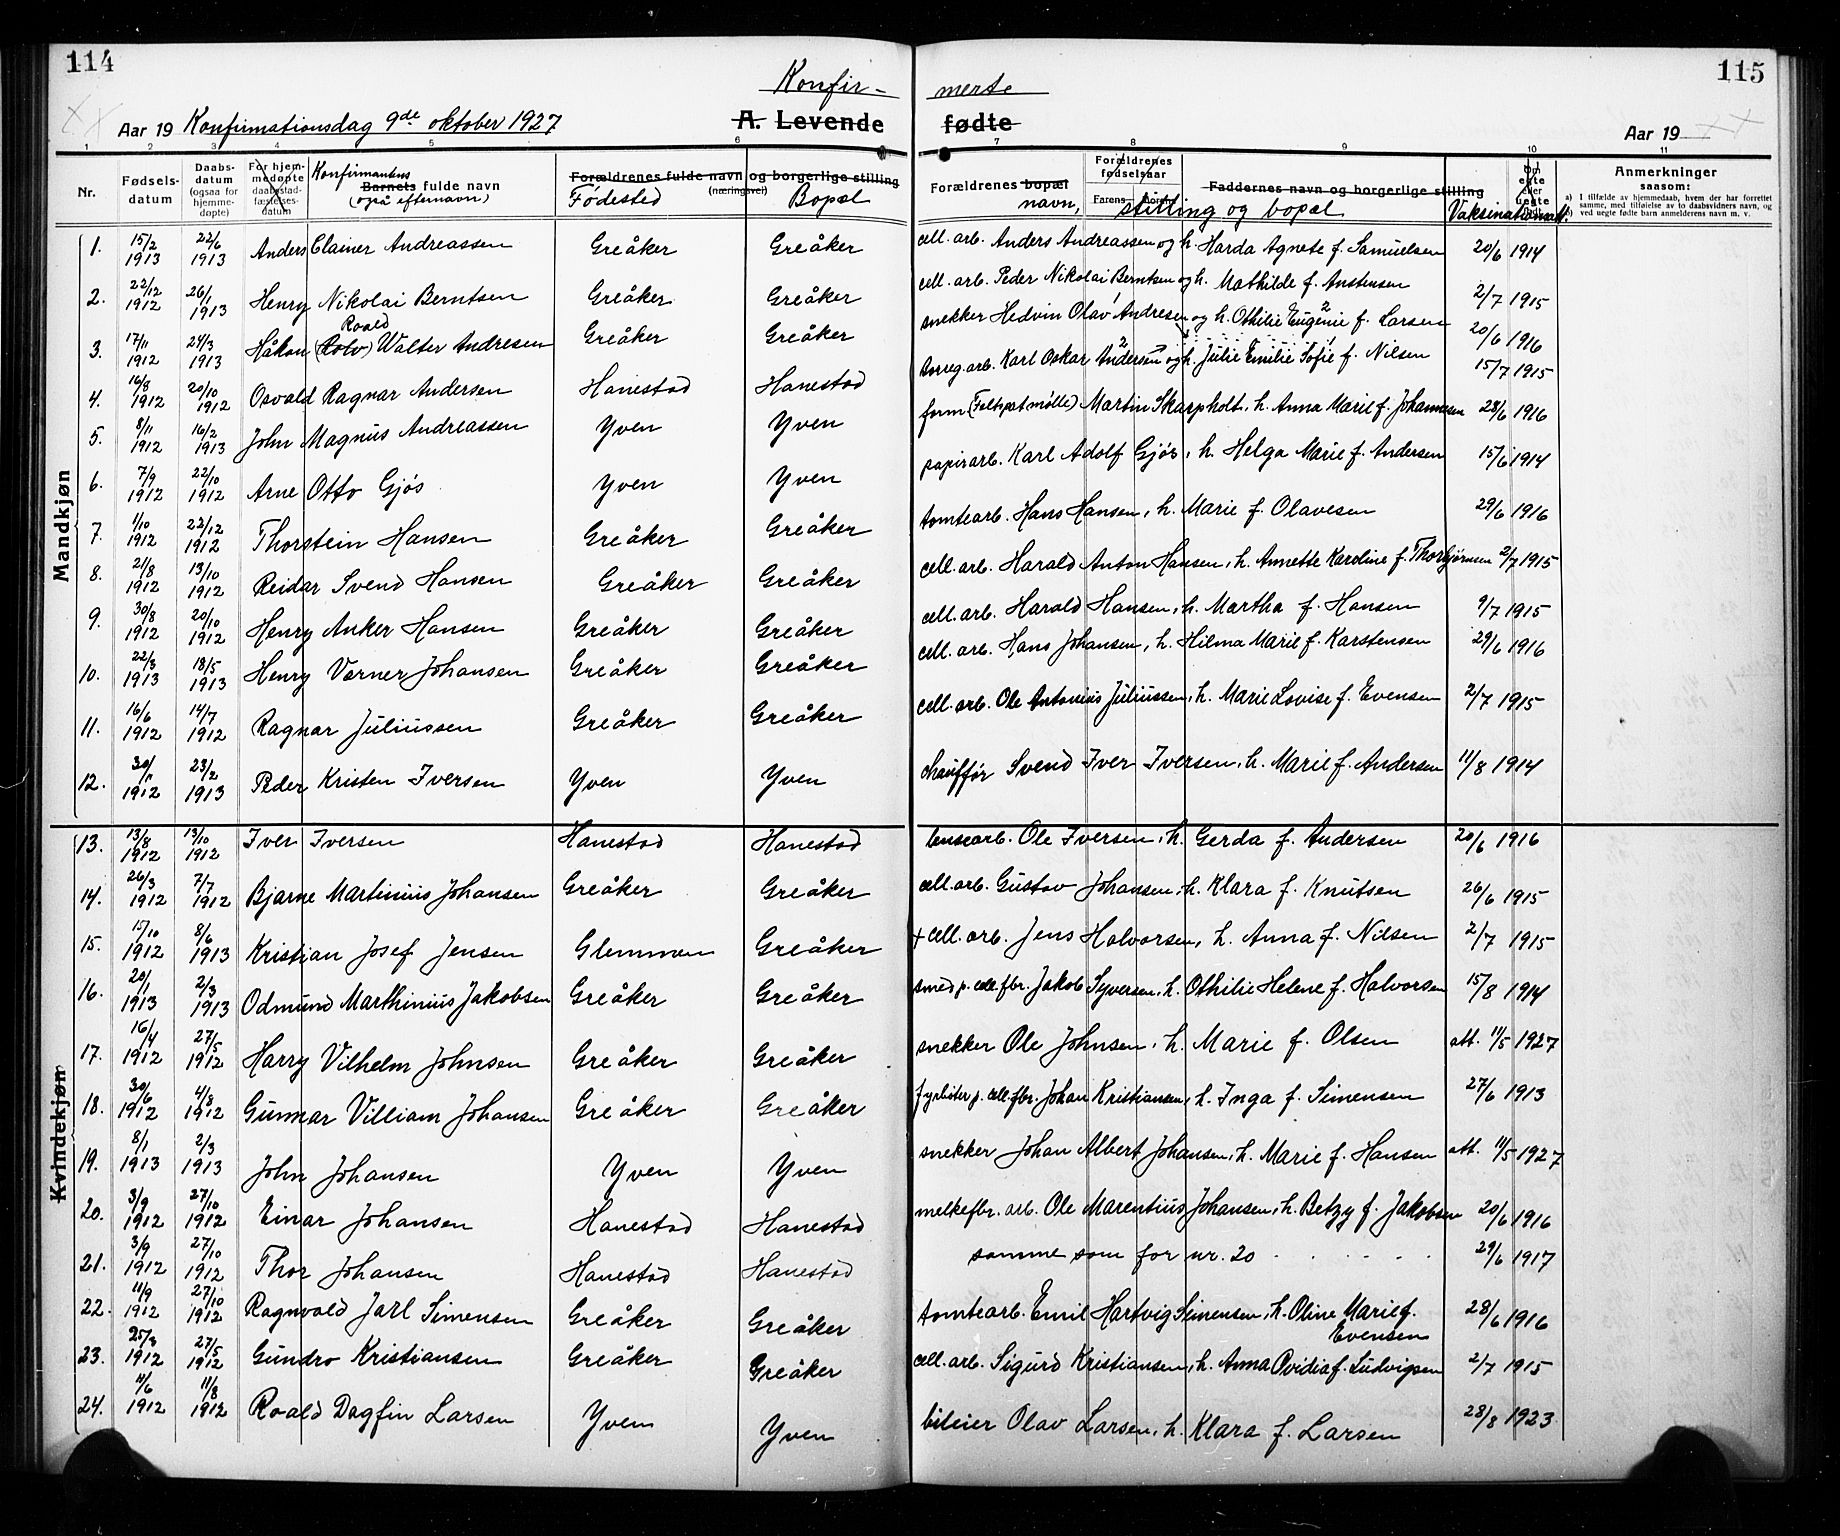 114
115
Konfir- merte
Aar 19 Konfirmationsdag 9de oktober 1927
A. Levende fødte
Aar 19
1 2 3 4 5 6 7 8 9 10 11
Nr. Fødsels-datum Daabs-datum (ogsaa for hjemme-døpte) For hjem-medøpte daabsstad-fæstelses-datum Konfirmantens Barnets fulde navn (også efternavn) Forældrenes fulde navn og borgerlige stilling (næringsvei) Fødested Bopæl Forældrenes bopæl navn, Forældrenes fødselsaar Farens Morens stilling og bopæl Faddernes navn og borgerlige stilling Om egte eller uegte født Vaksinationsatt. Anmerkninger saasom:
a) I tilfælde av hjemmedaab, hvem der har forrettet samme, med tilføielse av to daabsvidners navn, og
b) ved uegte fødte barn anmelderens navn m. v.
Mandkjøn
1. 15/2 1913 22/6 1913 Anders Elamer Andreassen Greåker Greåker cell. arb. Anders Andreassen og h. Harda Agnete f. Samuelsen 20/6 1914
2. 22/12 1912 26/1 1913 Henry Nikolai Berntsen Greåker Greåker cell. arb. Peder Nikolai Berntsen og h. Mathilde f. Anstensen 2/7 1915
3. 17/11 1912 24/3 1913 Håkon (Rolv) Roald Walter Andresen Greåker Greåker snekker Hedvin Olav Andresen og h. Othilie Eugenie f. Larsen 20/6 1916
4. 16/8 1912 20/10 1912 Osvald Ragnar Andersen Hanestad Hanestad torveg. arb. Karl Oskar Andersen og h. Julie Emilie Sofie f. Nilsen 15/7 1915
5. 8/11 1912 16/2 1913 John Magnus Andreassen Yven Yven form (Feltspatmølle) Martin Skarpholt, h. Anna Marie f. Johannesen 28/6 1916
6. 7/9 1912 22/10 1912 Arne Otto Gjøs Yven Yven papirarb. Karl Adolf Gjøs, h. Helga Marie f. Andersen 15/6 1914
7. 1/10 1912 22/12 1912 Thorstein Hansen Greåker Greåker tomtearb. Hans Hansen, h. Marie f. Olavesen 29/6 1916
8. 21/8 1912 13/10 1912 Reidar Svend Hansen Greåker Greåker cell. arb. Harald Anton Hansen, h. Annette Karoline f. Thorbjørnsen 2/7 1915
9. 30/8 1912 20/10 1912 Henry Anker Hansen Greåker Greåker cell. arb. Harald Hansen, h. Martha f. Hansen 9/7 1915
10. 22/3 1913 18/5 1913 Henry Verner Johansen Greåker Greåker cell. arb. Hans Johansen, h. Hilma Marie f. Karstensen 29/6 1916
11. 16/6 1912 14/7 1912 Ragnar Juliussen Greåker Greåker cell. arb. Ole Antonius Juliussen, h. Marie Lovise f. Evensen 2/7 1915
12. 30/11 1912 23/2 1913 Peder Kristen Iversen Yven Yven chauffør Svend Iver Iversen, h. Marie f. Andersen 11/8 1914
Kvindekjøn
13. 13/8 1912 13/10 1912 Iver Iversen Hanestad Hanestad lensearb. Ole Iversen, h. Gerda f. Andersen 20/6 1916
14. 26/3 1912 7/7 1912 Bjarne Martinius Johansen Greåker Greåker cell. arb. Gustav Johansen, h. Klara f. Knutsen 26/6 1915
15. 15/10 1912 8/6 1913 Kristian Josef Jensen Glemmen Greåker + cell. arb. Jens Halvorsen, h. Anna f. Nilsen 2/7 1915
16. 20/1 1913 2/3 1913 Odmund Marthinius Jakobsen Greåker Greåker smed p. cell. fbr. Jakob Syversen, h. Othilie Helene f. Halvorsen 15/8 1914
17. 16/4 1912 27/5 1912 Harry Vilhelm Johnsen Greåker Greåker snekker Ole Johnsen, h. Marie f. Olsen att. 11/5 1927
18. 30/6 1912 4/8 1912 Gunnar Villiam Johansen Greåker Greåker fyrbøter p. cell. fbr. Johan Kristiansen, h. Inga f. Simensen 27/6 1913
19. 8/1 1913 2/3 1913 John Johansen Yven Yven snekker Johan Albert Johansen, h. Marie f. Hansen att. 11/5 1927
20. 3/9 1912 27/10 1912 Einar Johansen Hanestad Hanestad melkefbr. arb. Ole Marentius Johansen, h. Betzy f. Jakobsen 20/6 1916
21. 3/9 1912 27/10 1912 Thor Johansen Hanestad Hanestad samme som for nr. 20 29/6 1917
22. 11/9 1912 27/10 1912 Ragnvald Jarl Simensen Greåker Greåker tomtearb. Emil Hartvig Simensen, h. Oline Marie f. Evensen 28/6 1916
23. 25/3 1912 27/5 1912 Gundro Kristiansen Greåker Greåker cell. arb. Sigurd Kristiansen, h. Anna Ovidia f. Ludvigsen 2/7 1915
24. 4/6 1912 11/8 1912 Roald Dagfin Larsen Yven Yven bileier Olav Larsen, h. Klara f. Larsen 28/8 1923